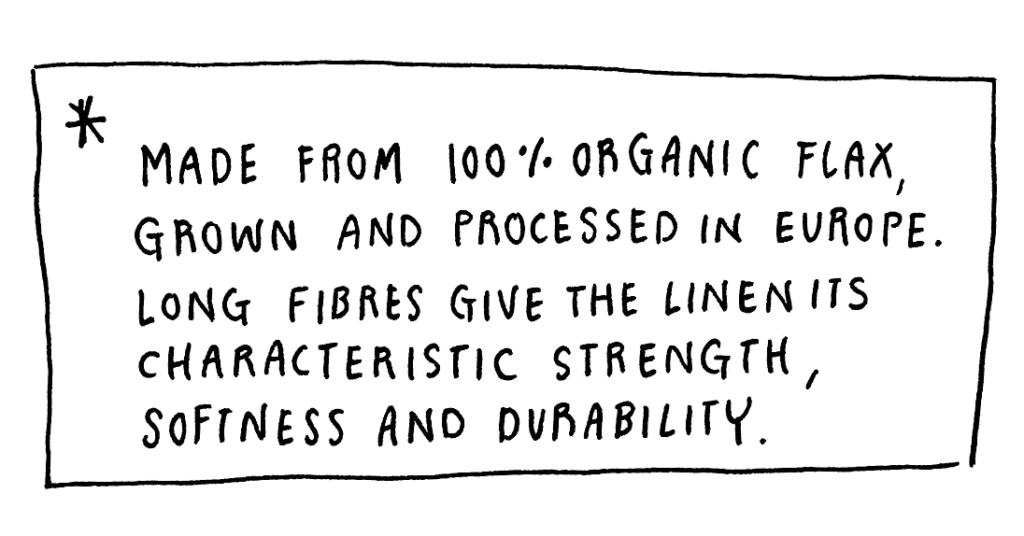 * MADE FROM 100% ORGANIC FLAX,
GROWN AND PROCESSED IN EUROPE.
LONG FIBRES GIVE THE LINEN ITS
CHARACTERISTIC STRENGTH,
SOFTNESS AND DURABILITY.